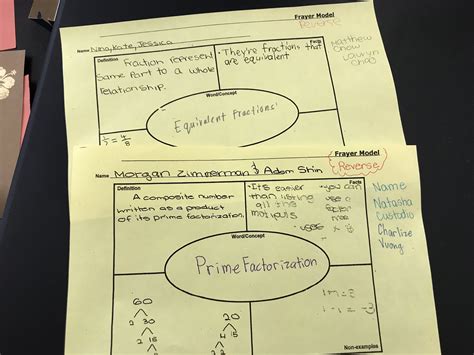 Frayer Model
Reverse
Name Nina, Kate, Jessica
Matthew
Chow
Lauryn
Choo
Definition
Fraction represent
same part to a whole
relationship.
Facts
• They're fractions that
are equivalent
Word/Concept
Equivalent Fractions
1/2 = 4/8
Frayer Model
Reverse
Name Morgan Zimmerman & Adam Shin
Definition
A composite number
written as a product
of its prime factorization.
Facts
• It's easier
than listing
all the
• you can
use a
factor
tree
• uses x
Name
Natasha
Custodio
Charlize
Vuong
Word/Concept
Prime Factorization
60
2 30
2 15
20
4
Non-examples